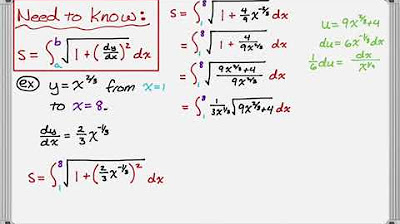 Need to know:
S = ∫_a^b √(1 + (dy/dx)²) dx
ex) y = x^(2/3) from x=1
to x = 8.
dy/dx = 2/3 x^(-1/3)
S = ∫_1^8 √(1 + (2/3 x^(-1/3))²) dx
S = ∫_1^8 √(1 + 4/9 x^(-2/3)) dx
= ∫_1^8 √(1 + 4/(9x^(2/3))) dx
= ∫_1^8 √((9x^(2/3) + 4)/(9x^(2/3))) dx
= ∫_1^8 1/(3x^(1/3)) √(9x^(2/3) + 4) dx
u = 9x^(2/3) + 4
du = 6x^(-1/3) dx
1/6 du = dx/x^(1/3)